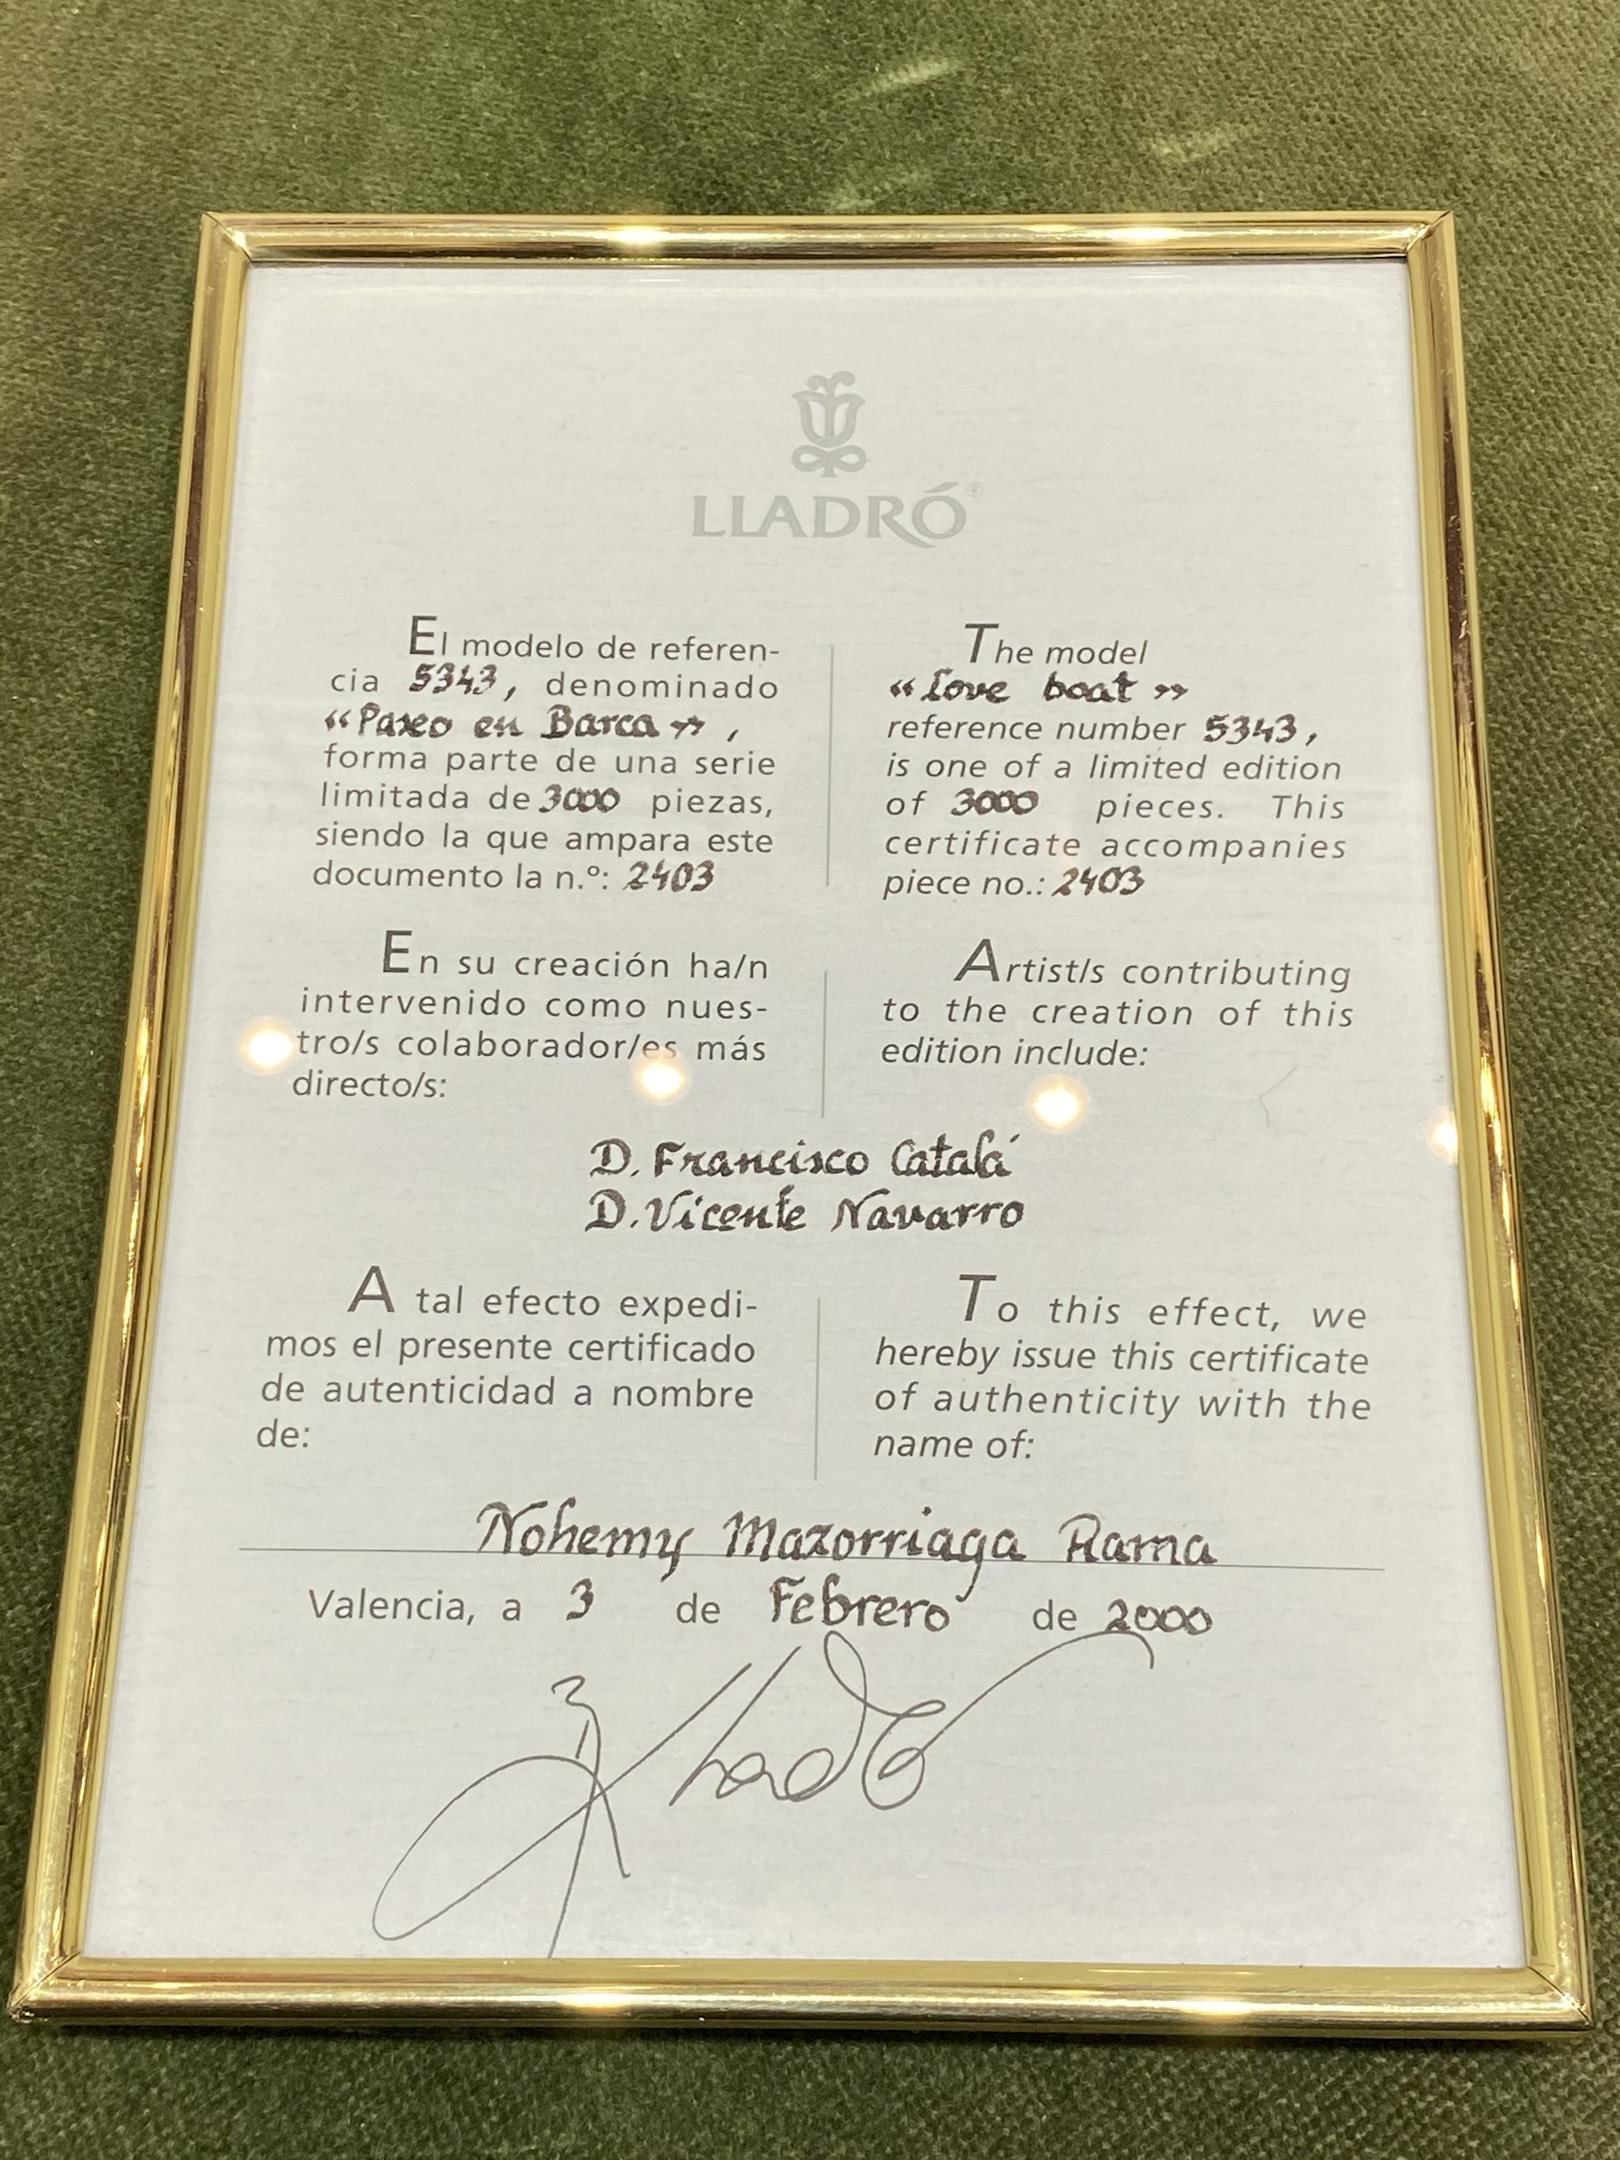 LLADRÓ®
El modelo de referen-
cia 5343, denominado
«Paseo en Barca»,
forma parte de una serie
limitada de 3000 piezas,
siendo la que ampara este
documento la n.º: 2403
The model
«Love boat»
reference number 5343,
is one of a limited edition
of 3000 pieces. This
certificate accompanies
piece no.: 2403
En su creación ha/n
intervenido como nues-
tro/s colaborador/es más
directo/s:
Artist/s contributing
to the creation of this
edition include:
D. Francisco Catalá
D. Vicente Navarro
A tal efecto expedi-
mos el presente certificado
de autenticidad a nombre
de:
To this effect, we
hereby issue this certificate
of authenticity with the
name of:
Nohemy Mazorriaga Rama
Valencia, a 3 de Febrero de 2000